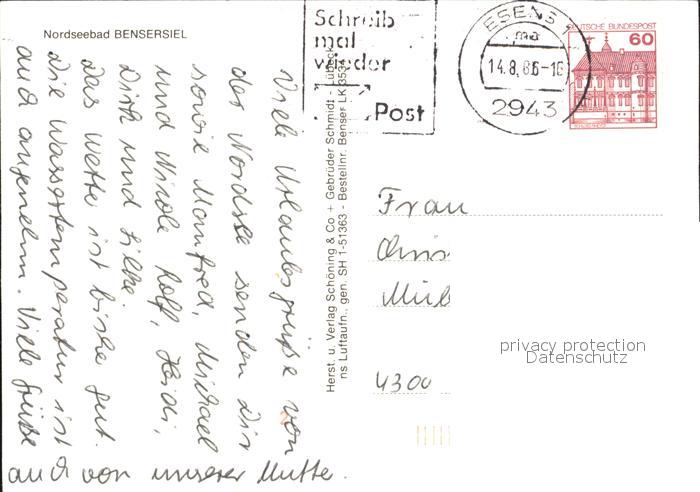 Nordseebad BENSERSIEL
Viele Urlaubsgrüße von
der Nordsee senden Dir
sowie Manfred, Michael
und Nicole Rolf, Heidi,
Dirk und Silke
Das Wetter ist bisher gut.
Die Wassertemperatur ist
auch angenehm. Viele Grüße
auch von unserer Mutter.
Herst. u. Verlag Schöning & Co + Gebrüder Schmidt · Lübeck
ns Luftaufn., gen. SH 1-51363 - Bestellnr. Benser LK 353
Schreib
mal
wieder
Post
ESENS
14.8.86-16
2943
DEUTSCHE BUNDESPOST
60
Frau
4300
privacy protection
Datenschutz